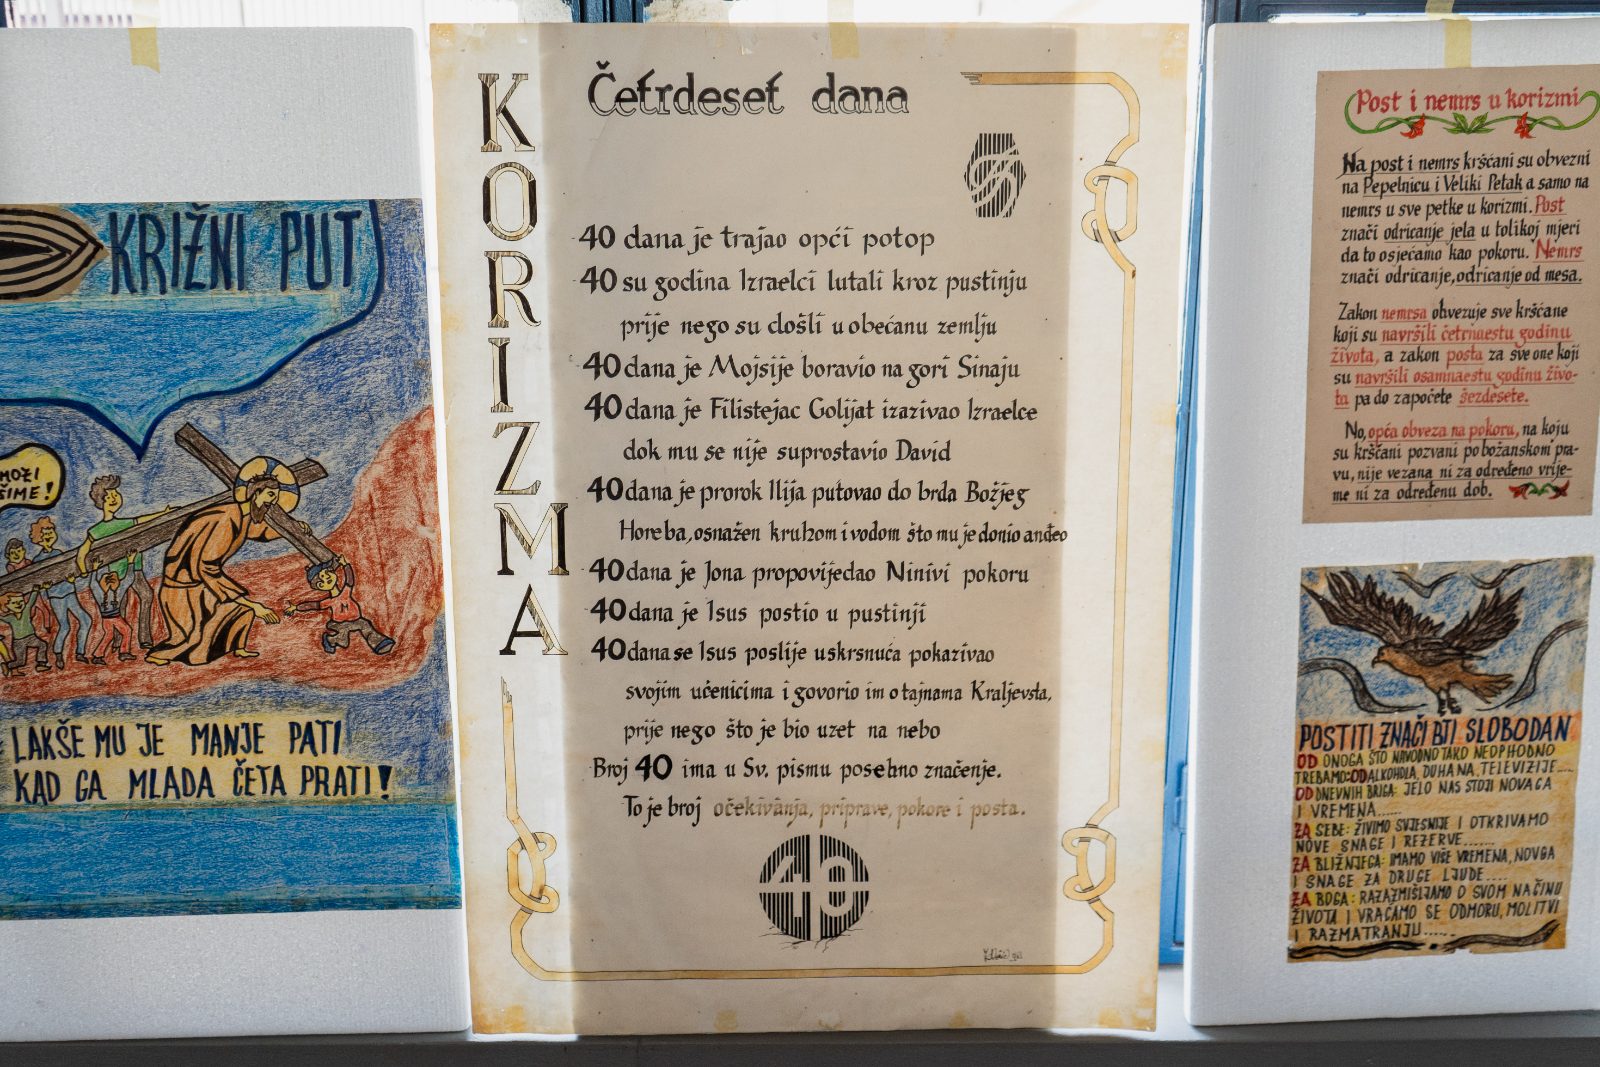 KRIŽNI PUT
MOŽI
ŠIME!
LAKŠE MU JE MANJE PATI
KAD GA MLADA ČETA PRATI!
KORIZMA
Četrdeset dana
40 dana je trajao opći potop
40 su godina Izraelci lutali kroz pustinju
prije nego su došli u obećanu zemlju
40 dana je Mojsije boravio na gori Sinaju
40 dana je Filistejac Golijat izazivao Izraelce
dok mu se nije suprostavio David
40 dana je prorok Ilija putovao do brda Božjeg
Horeba, osnažen kruhom i vodom što mu je donio anđeo
40 dana je Jona propovijedao Ninivi pokoru
40 dana je Isus postio u pustinji
40 dana se Isus poslije uskrsnuća pokazivao
svojim učenicima i govorio im o tajnama Kraljevsta,
prije nego što je bio uzet na nebo
Broj 40 ima u Sv. pismu posebno značenje.
To je broj očekivanja, priprave, pokore i posta.
40
Post i nemrs u korizmi
Na post i nemrs kršćani su obvezni
na Pepelnicu i Veliki Petak a samo na
nemrs u sve petke u korizmi. Post
znači odricanje jela u tolikoj mjeri
da to osjećamo kao pokoru. Nemrs
znači odricanje, odricanje od mesa.
Zakon nemrsa obvezuje sve kršćane
koji su navršili četrnaestu godinu
života, a zakon posta za sve one koji
su navršili osamnaestu godinu živo-
ta pa do započete šezdesete.
No, opća obveza na pokoru, na koju
su kršćani pozvani po božanskom pra-
vu, nije vezana ni za određeno vrije-
me ni za određenu dob.
POSTITI ZNAČI BTI SLOBODAN
OD ONOGA ŠTO NAVODNO TAKO NEOPHODNO
TREBAMO: OD ALKOHOLA, DUHANA, TELEVIZIJE....
OD DNEVNIH BRIGA: JELO NAS STOJI NOVAGA
I VREMENA......
ZA SEBE: ŽIVIMO SVJESNIJE I OTKRIVAMO
NOVE SNAGE I REZERVE.......
ZA BLIŽNJEGA: IMAMO VIŠE VREMENA, NOVGA
I SNAGE ZA DRUGE LJUDE....
ZA BOGA: RAZAZMIŠLJAMO O SVOM NAČINU
ŽIVOTA I VRAĆAMO SE ODMORU, MOLITVI
I RAZMATRANJU......